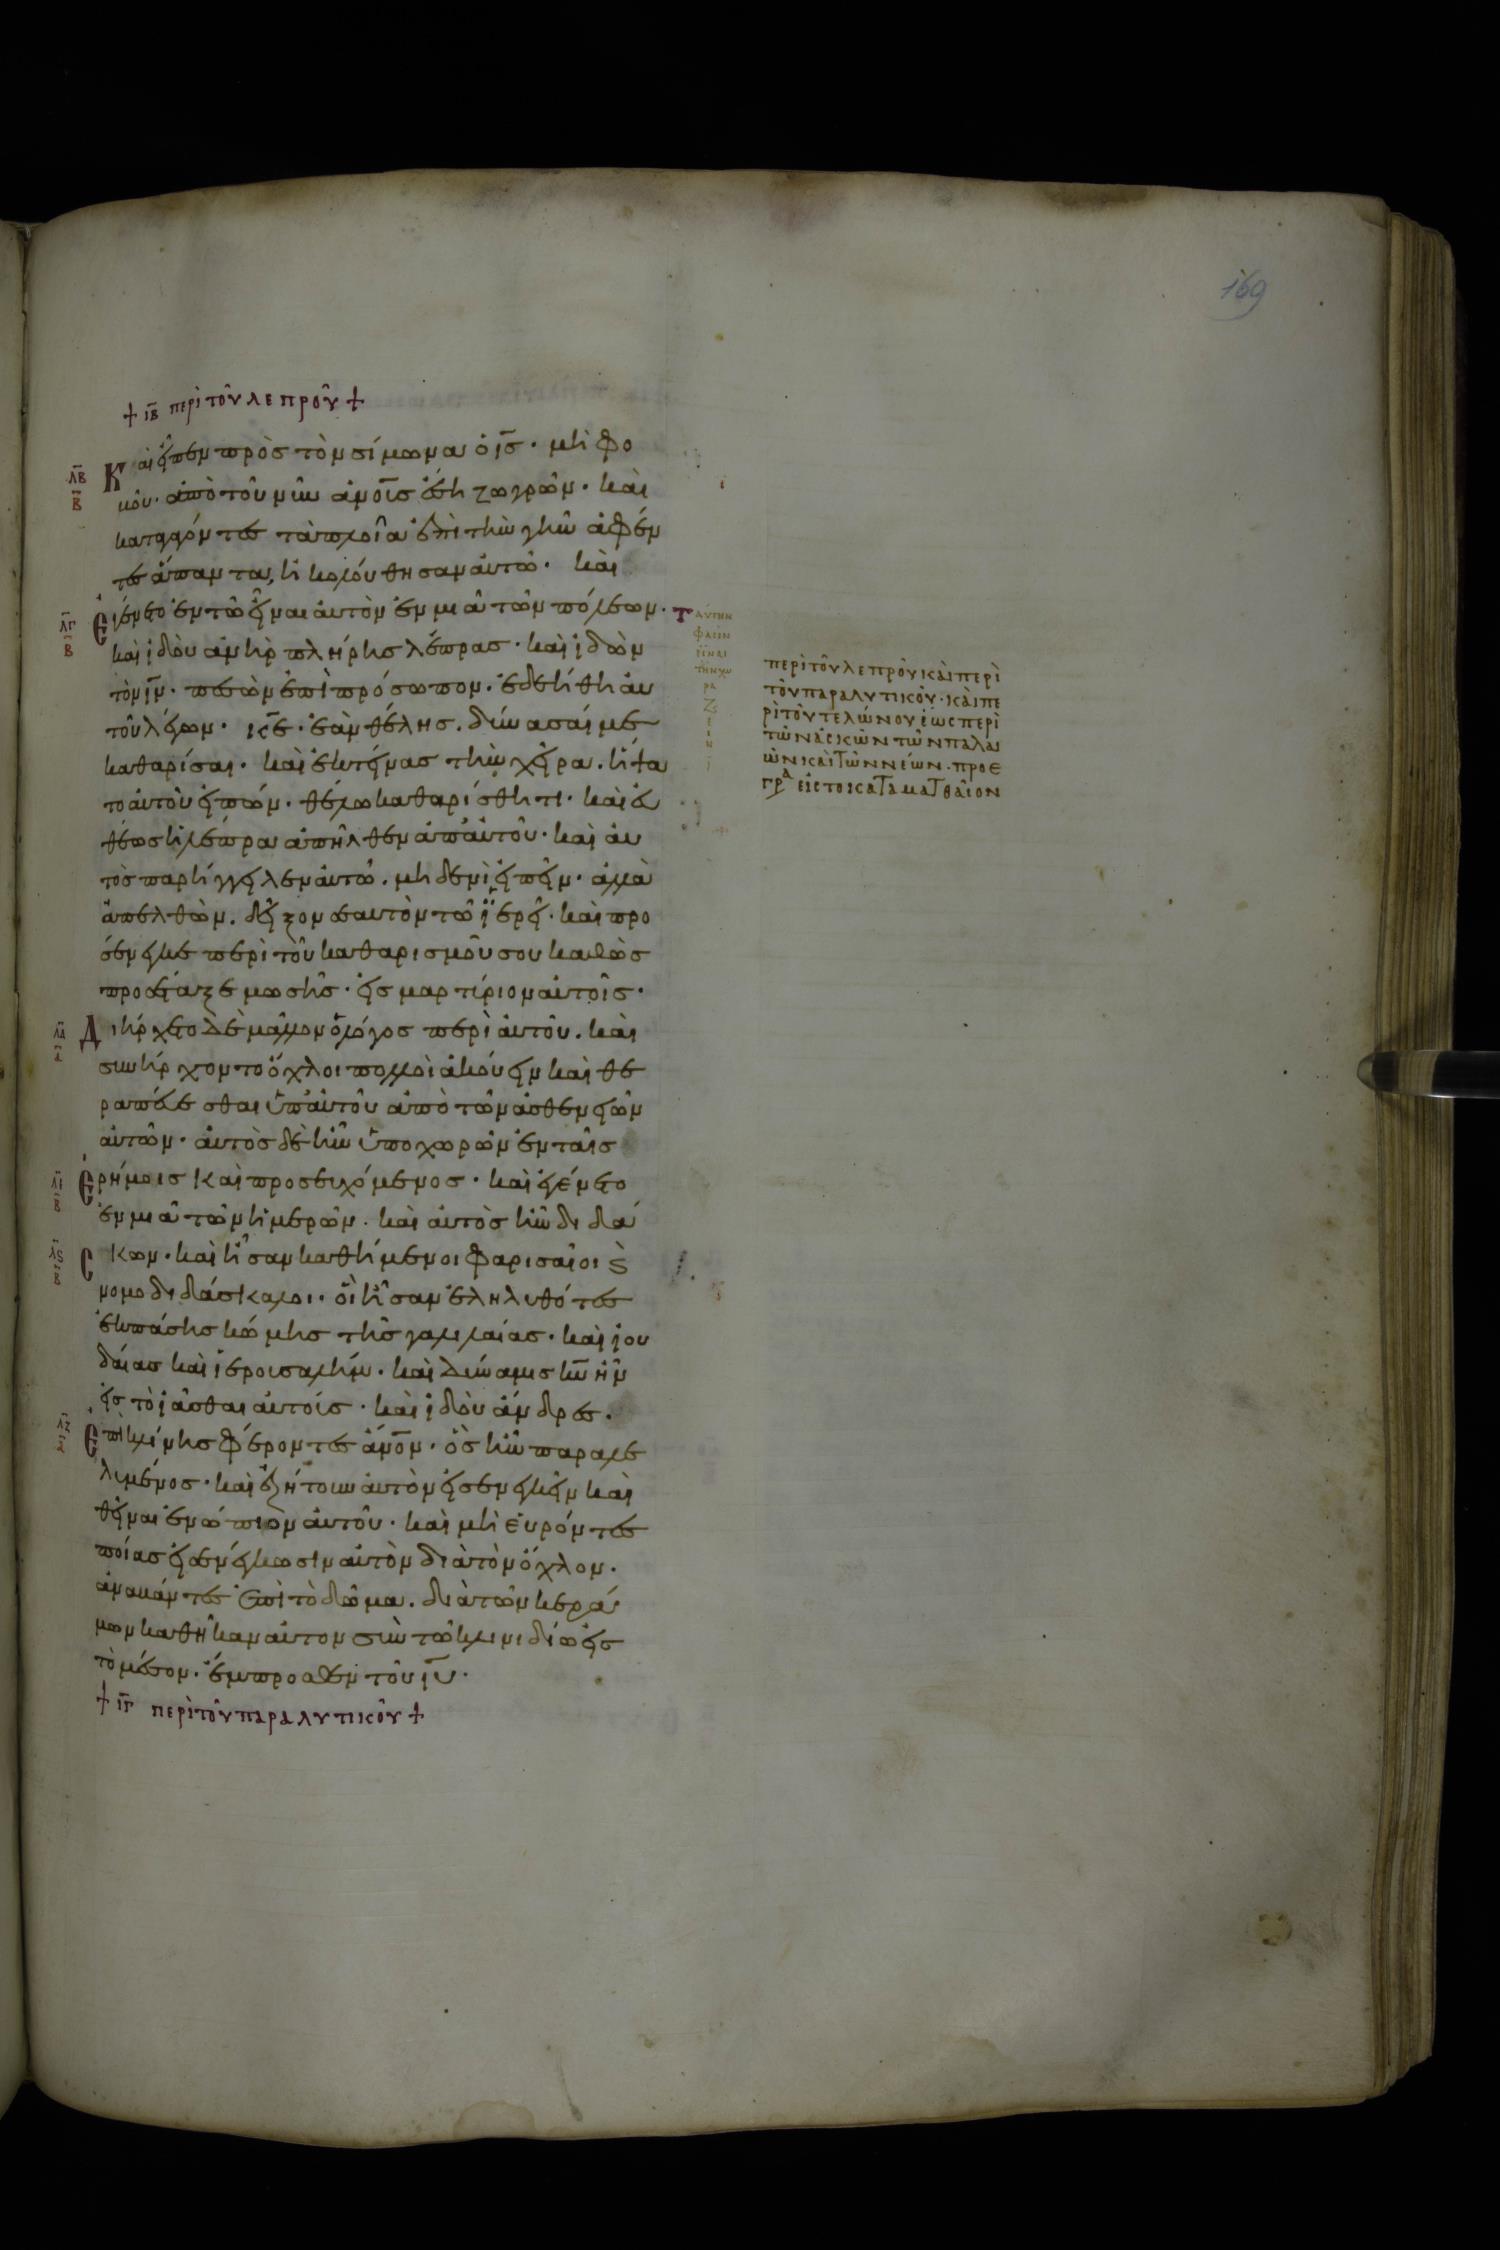 169
+ ιβ περὶ τοῦ λεπροῦ +
λβ
β
Και εἶπεν πρὸς τὸν σίμωνα ὁ ις · μὴ φο
μὸυ · ἀπὸ τοῦ νῦν ἀνους ἔση ζωγρῶν · καὶ
καταγαγόντες τὰ πλοῖα ἐπὶ τὴν γῆν ἀφέν
τες ἅπαντα, ἠκολούθησαν ἀυτῶ · καὶ
λγ
β
Ἐγένετο ἐν τῶ εἶναι ἀυτὸν ἐν μιᾶ τῶν πόλεων ·
και ἰδὸυ ἀνὴρ πλήρης λέπρας · καὶ ἰδὼν
τὸν ιν · πεσὼν ἐπὶ πρόσωπον · ἐδεήθη ἀυ
τοῦ λέγων · κε · ἐὰν θέλης · δύνασαί με
καθαρίσαι · καὶ ἐκτείνας τὴν χεῖρα · ἥψα
το ἀυτοῦ εἰπών · θέλω καθαρίσθητι · καὶ ἐυ
θέως ἡ λέπρα ἀπῆλθεν ἀπ' ἀυτοῦ · καὶ ἀυ
τὸς παρήγγειλεν ἀυτῶ · μηδενὶ εἰπεῖν · ἀλλὰ
ἀπελθὼν · δεῖξον σεαυτὸν τῶ ϊερεῖ · καὶ προ
σένεγκε περὶ τοῦ καθαρισμοῦ σου καθὼς
προσέταξε μωσῆς · εἰς μαρτύριον ἀυτοῖς ·
λδ
α
Διήρχετο δὲ μᾶλλον ὁ λόγος περὶ ἀυτοῦ · καὶ
συνήρχοντο ὄχλοι πολλοὶ ἀκούειν καὶ θε
ραπέυεσθαι ὑπ' ἀυτοῦ ἀπὸ τῶν ἀσθενειῶν
ἀυτῶν · ἀυτὸς δὲ ἦν ὑποχωρῶν ἐν ταῖς
β
Ἐρήμοις καὶ προσευχόμενος · καὶ ἐγένετο
ἐν μιᾶ τῶν ἡμερῶν · καὶ ἀυτὸς ἦν διδά
λϛ
β
Cκων · καὶ ἦσαν καθήμενοι φαρισαῖοι ϛ
νομοδιδάσκαλοι · οἳ ἦσαν ἐληλυθότες
ἐκ πάσης κώμης τῆς γαλιλαίας · καὶ ἰου
δαίας καὶ ἱερουσαλήμ · καὶ δύναμις κυ ἦν
εἰς τὸ ἰᾶσθαι ἀυτούς · καὶ ἰδὸυ ἄνδρες ·
λζ
α
Ἐπὶ κλίνης φέροντες ἄνον · ὃς ἦν παραλε
λυμένος · καὶ ἐζήτουν ἀυτὸν εἰσενεγκεῖν καὶ
θεῖναι ἐνώπιον ἀυτοῦ · καὶ μὴ εὑρόντες
ποίας εἰσενέγκωσιν ἀυτὸν διὰ τὸν ὄχλον ·
ἀναβάντες ἐπὶ τὸ δῶμα · διὰ τῶν κερά
μων καθῆκαν ἀυτον σὺν τῶ κλινιδίω εἰς
τὸ μέσον · ἔμπροσθεν τοῦ ιυ ·
+ ιγ περὶ τοῦ παραλυτικοῦ +
Ταύτην
φασιν
εἶναι
τὴν χω
ρα
ζ
ε
ι
ν
περὶ τοῦ λεπροῦ καὶ περὶ
τοῦ παραλυτικοῦ · καὶ πε
ρὶ τοῦ τελώνου ἕως περὶ
τῶν ἀσκῶν τῶν παλαι
ῶν καὶ τῶν νέων · προε
γρα εἰς το κατα ματθαῖον